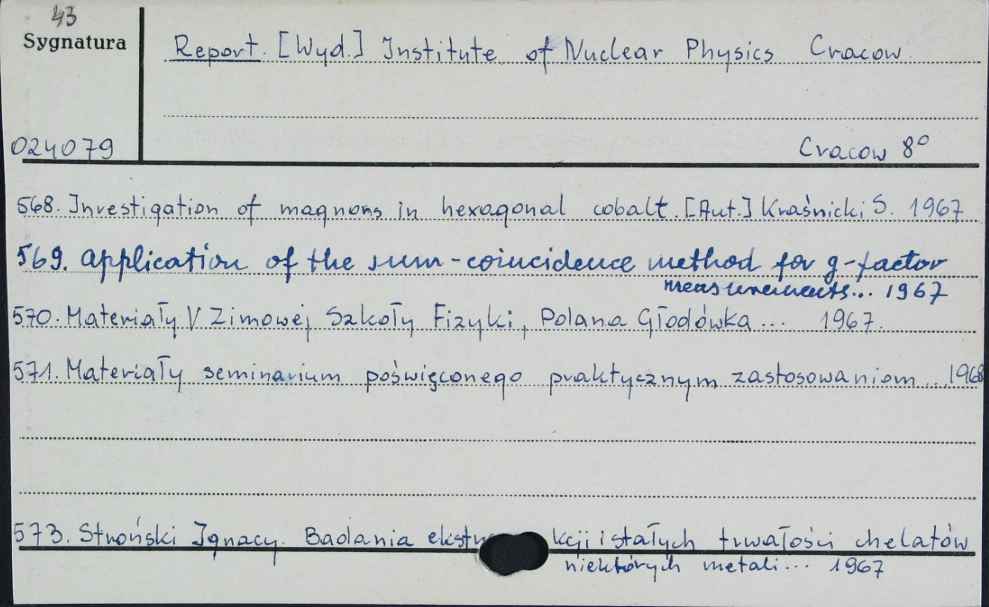 43
Sygnatura
Report. [Wyd.] Institute of Nuclear Physics Cracow.
024079
Cracow 8°
568. Investigation of magnons in hexagonal cobalt. [Aut.] Kraśnicki S. 1967
569. Application of the sum-coincidence method for g-factor
measurements... 1967
570. Materiały V Zimowej Szkoły Fizyki, Polana Głodówka... 1967.
571. Materiały seminarium poświęconego praktycznym zastosowaniom... 1968
573. Stroński Ignacy. Badania ekstrakcji i stałych trwałości chelatów
niektórych metali... 1967